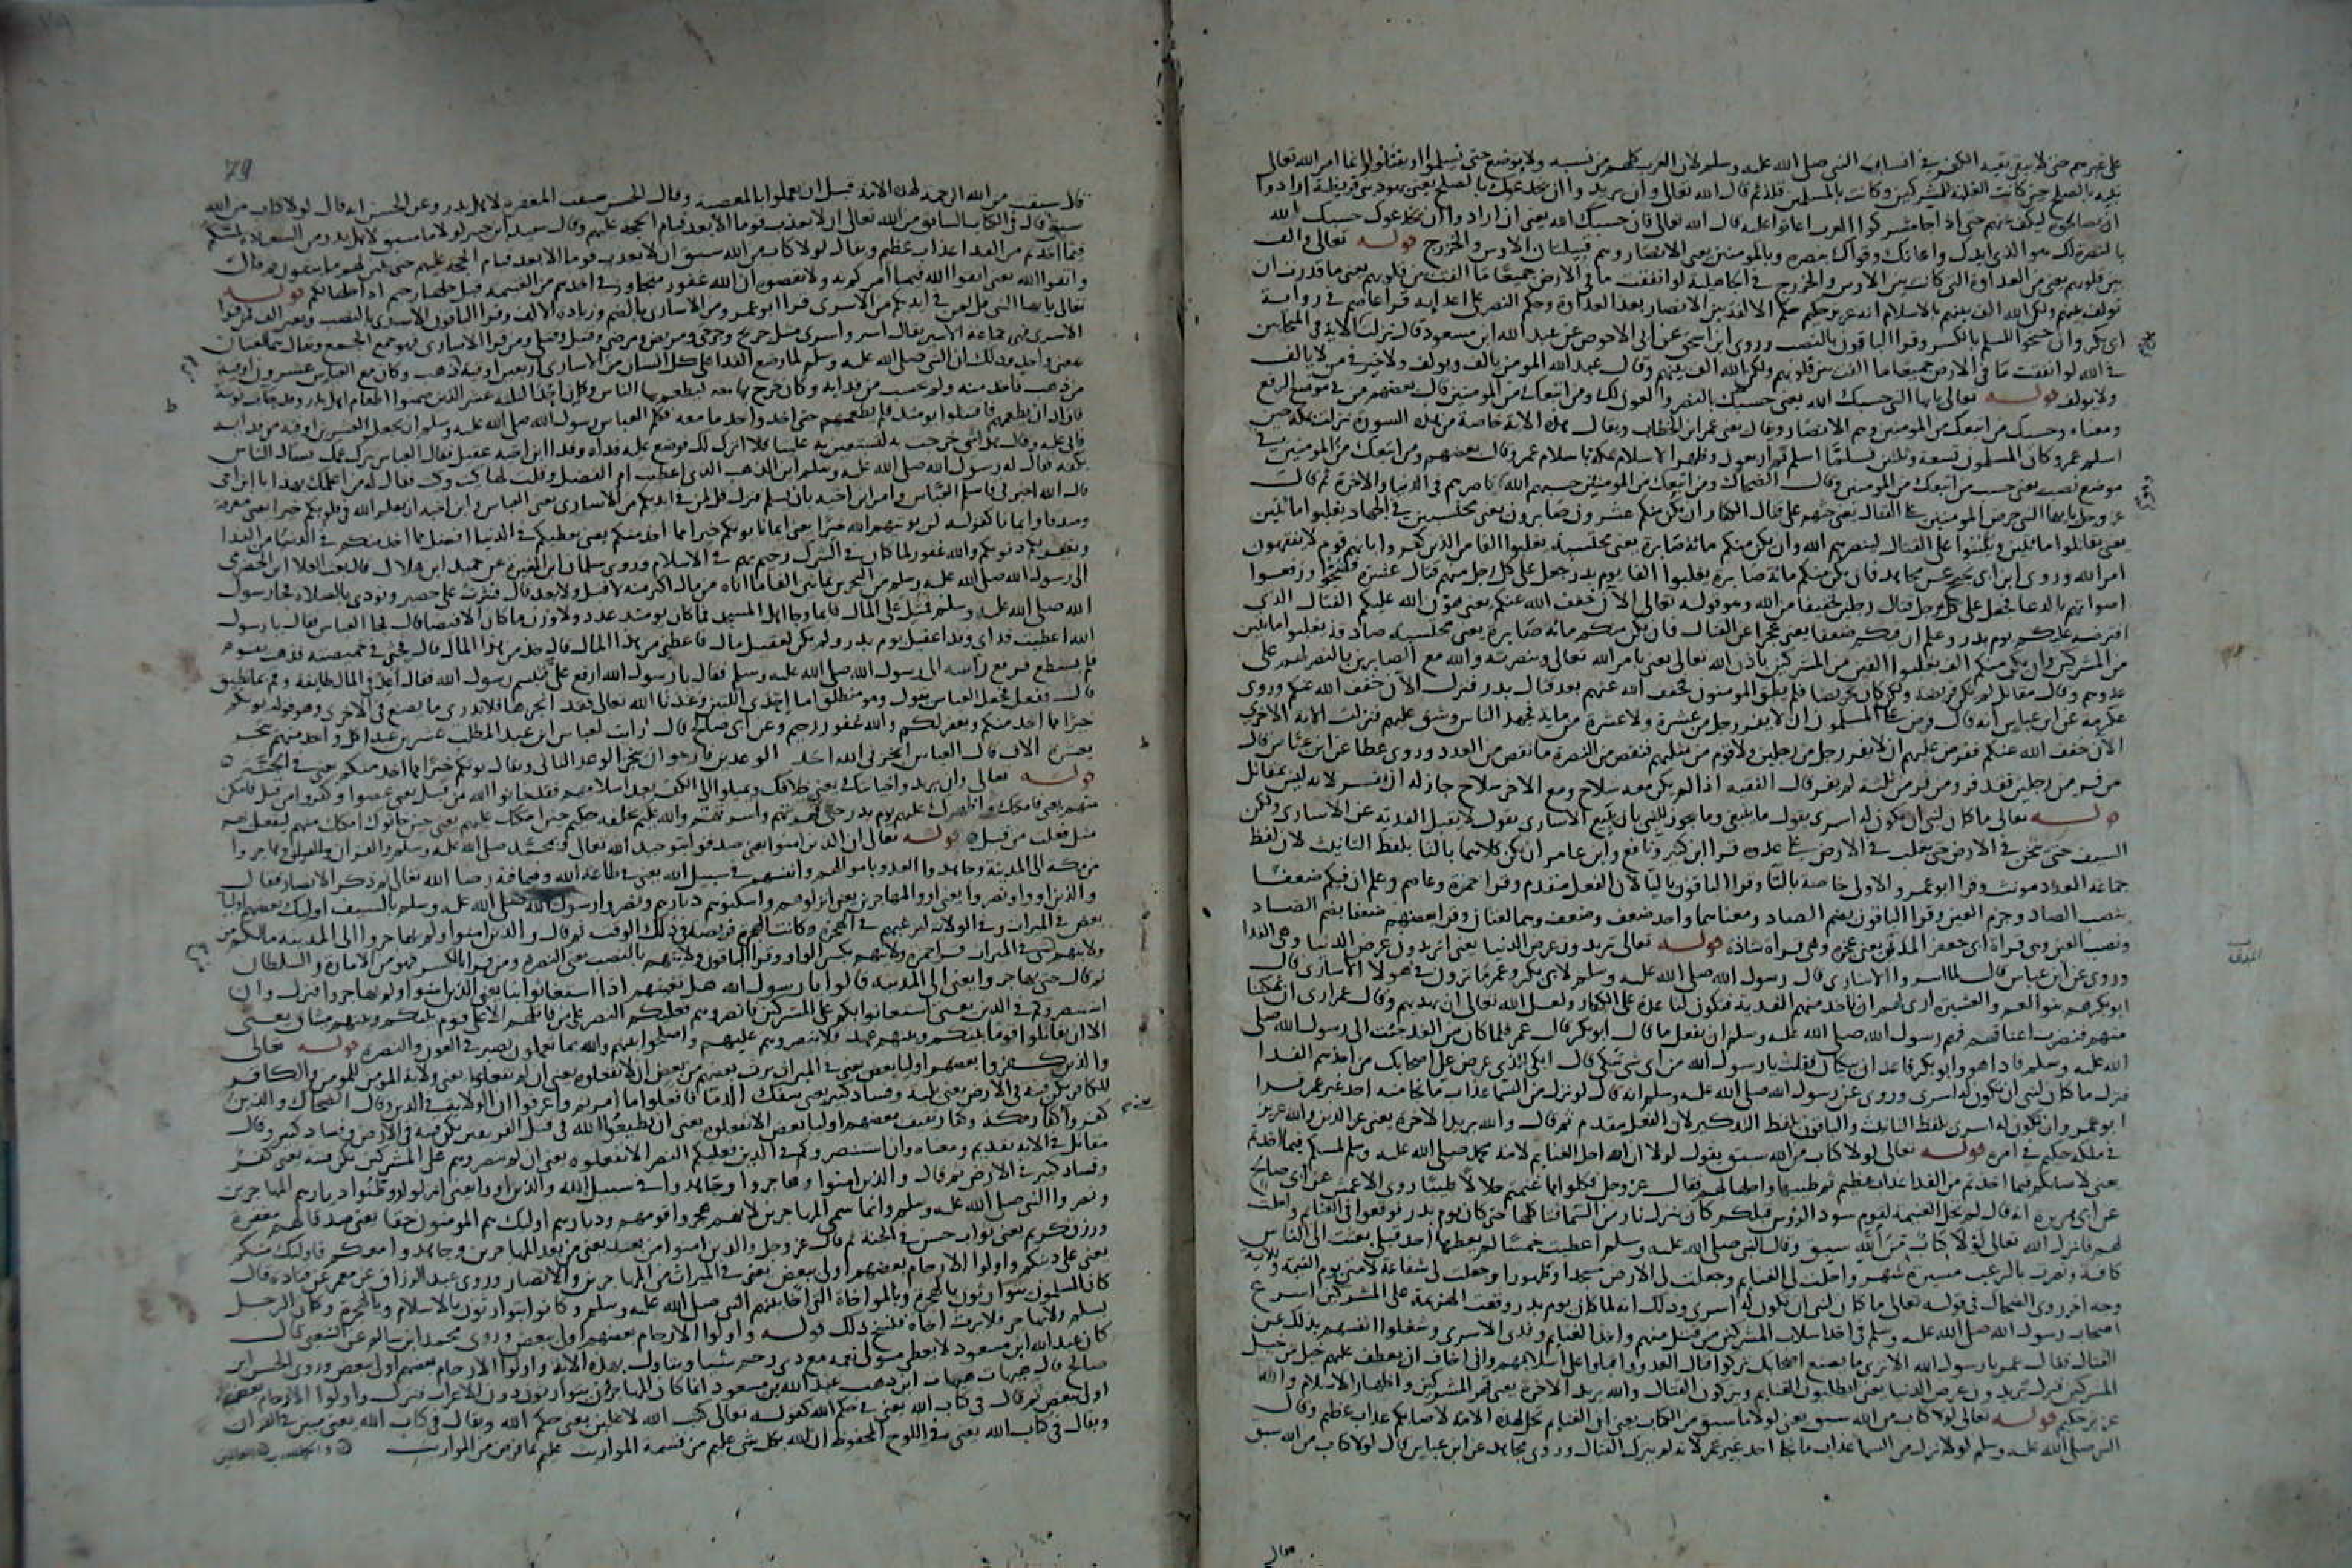 على غيرهم حتى لا يبقى بقية الكفر في انساب النبي صلى الله عليه وسلم لان العرب كلهم من نسبه ولا يوضع حتى يسلموا او يقتلوا وانما امر الله تعالى
نبيه بالصلح حين كانت الغلبة للمشركين وكانت بالمسلمين قلة ثم قال الله تعالى وان يريدوا ان يخدعوك بالصلح يعني يهود بني قريظة ارادوا
ان يصالحوك ليكف عنهم حتى اذا جا مشركوا العرب اعانوا عليه قال الله تعالى فان حسبك الله يعني ان ارادوا ان يخدعوك حسبك الله
بالنصرة لك هو الذي ايدك واعانك وقواك بنصره وبالمومنين يعني الانصار وهم قبيلتان الاوس والخزرج قوله تعالى والف
بين قلوبهم يعني من العداوة التي كانت بين الاوس والخزرج في الجاهلية لو انفقت ما في الارض جميعا ما الفت بين قلوبهم يعني ما قدرت ان
تولف بينهم ولكن الله الف بينهم بالاسلام انه عزيز حكيم حكم الالفة بين الانصار بعد العداوة وحكم النصر على اعدايه قرا عاصم في رواية
ابي بكر وان جنحوا للسلم بالكسر وقرا الباقون بالنصب وروى ابو اسحق عن ابي الاحوص عن عبد الله ابن مسعود قال نزلت الاية في المتحابين
في الله لو انفقت ما في الارض جميعا ما الفت بين قلوبهم ولكن الله الف بينهم وقال عبد الله المومن يالف ويولف ولا خير في من لا يالف
ولا يولف قوله تعالى يايها النبي حسبك الله يعني حسبك بالنصر والعون لك ومن اتبعك من المومنين قال بعضهم من في موضع الرفع
ومعناه وحسبك من اتبعك من المومنين وهم الانصار ويقال يعني عمر ابن الخطاب ويقال هذه الاية خاصة من هذه السورة نزلت بمكة حين
اسلم عمر وكان المسلمون تسعة وثلثين فلما اسلم تم اربعون وظهر الاسلام بمكة باسلام عمر وقال بعضهم ومن اتبعك من المومنين في
موضع نصب يعني حسب من اتبعك من المومنين وقال الضحاك ومن اتبعك من المومنين حسبهم الله ناصرهم في الدنيا والاخرة ثم قال
عز وجل يايها النبي حرض المومنين على القتال يعني حثهم على قتال الكفار ان يكن منكم عشرون صابرون يعني محتسبين في الجهاد يغلبوا مائتين
يعني يقاتلوا مائتين ويثبتوا على القتال لينصرهم الله وان يكن منكم مائة صابرة يعني محتسبة يغلبوا الفا من الذين كفروا بانهم قوم لا يفقهون
امر الله وروى ابن ابي نجيح عن مجاهد فان يكن منكم مائة صابرة يغلبوا الفا يوم بدر جعل على كل رجل منهم قتال عشرة فضجوا ورفعوا
اصواتهم بالدعا فجعل على كل رجل قتال رجلين تخفيفا من الله وهو قوله تعالى الان خفف الله عنكم يعني هون الله عليكم القتال الذي
افترضه عليكم يوم بدر وعلم ان فيكم ضعفا يعني عجزا عن القتال فان يكن منكم مائة صابرة يعني محتسبة صادقة يغلبوا مائتين
من المشركين وان يكن منكم الف يغلبوا الفين من المشركين باذن الله تعالى يعني بامر الله تعالى ونصرته والله مع الصابرين بالنصر لهم على
عدوهم وقال مقاتل لم يكن فريضة ولكن كان تحريضا فلم يطق المومنون فخفف الله عنهم بعد قتال بدر فنزل الان خفف الله عنكم وروى
عكرمة عن ابن عباس انه قال فرض على المسلمين ان لا يفر رجل من عشرة ولا عشرة من مائة فجهد الناس وشق عليهم فنزلت الاية الاخرى
الان خفف الله عنكم ففرض عليهم ان لا يفر رجل من رجلين ولا قوم من مثليهم فنقص من النصرة ما نقص من العدد وروى عطا عن ابن عباس قال
من فر من رجلين فقد فر ومن فر من ثلثة لم يفر قال الفقيه اذا لم يكن معه سلاح ومع الاخر سلاح جاز له ان يفر لانه ليس بمقاتل
قوله تعالى ما كان لنبي ان يكون له اسرى يقول ما ينبغي وما يجوز للنبي ان يبيع الاسارى يقول لا يقبل الفدية عن الاسارى ولكن
السيف حتى يثخن في الارض حتى يغلب في الارض على عدوه قرا ابن كثير ونافع وابن عامر ان يكن كلاهما باليا بلفظ التانيث لان لفظ
جماعة العدد مونث وقرا ابو عمرو الاولى خاصة بالتا وقرا الباقون باليا لان الفعل متقدم وقرا حمزة وعاصم وعلم ان فيكم ضعفا
بنصب الضاد وجزم العين وقرا الباقون بضم الضاد ومعناهما واحد ضعف وضعف وهما لغتان وقرا بعضهم ضعفا بضم الضاد
ونصب العين وهي قراة ابي جعفر المدني يعني عجزة وهي قراة شاذة قوله تعالى تريدون عرض الدنيا يعني اتريدون عرض الدنيا وهي الفدا
وروي عن ابن عباس قال لما اسروا الاسارى قال رسول الله صلى الله عليه وسلم لابي بكر وعمر ما ترون في هولا الاسارى قال
ابو بكر هم بنو العم والعشيرة ارى لهم ان تاخذ منهم الفدية فتكون لنا عدة على الكفار ولعل الله تعالى ان يهديهم وقال عمر ارى ان تمكنا
منهم فنضرب اعناقهم فهم رسول الله صلى الله عليه وسلم ان يفعل ما قال ابو بكر قال عمر فلما كان من الغد جئت الى رسول الله صلى
الله عليه وسلم فاذا هو وابو بكر قاعدان يبكيان فقلت يا رسول الله من اي شي تبكي قال ابكي للذي عرض على اصحابك من اخذهم الفدا
فنزل ما كان لنبي ان يكون له اسرى وروي عن رسول الله صلى الله عليه وسلم انه قال لو نزل من السما عذاب ما نجا منه احد غير عمر قرا
ابو عمرو ان تكون له اسرى بلفظ التانيث والباقون بلفظ التذكير لان الفعل مقدم ثم قال والله يريد الاخرة يعني عز الدين والله عزيز
في ملكه حكيم في امره قوله تعالى لولا كتاب من الله سبق يقول لولا ان الله احل الغنايم لامة محمد صلى الله عليه وسلم لمسكم فيما اخذتم
يعني لاصابكم فيما اخذتم من الفدا عذاب عظيم ثم طيبها واحلها لهم فقال عز وجل فكلوا مما غنمتم حلالا طيبا روى الاعمش عن ابي صالح
عن ابي هريرة انه قال لم تحل الغنيمة لقوم سود الروس قبلكم كان ينزل نار من السما فتاكلها حتى كان يوم بدر فوقعوا في الغنايم واحلت
لهم فانزل الله تعالى لولا كتاب من الله سبق وقال النبي صلى الله عليه وسلم اعطيت خمسا لم يعطها احد قبلي بعثت الى الناس
كافة ونصرت بالرعب مسيرة شهر واحلت لي الغنايم وجعلت لي الارض مسجدا وطهورا وجعلت لي شفاعة لامتي يوم القيمة وللاية
وجه اخر روى الضحاك في قوله تعالى ما كان لنبي ان يكون له اسرى وذلك انه لما كان يوم بدر ووقعت الهزيمة على المشركين اسرع
اصحاب رسول الله صلى الله عليه وسلم في اخذ اسلاب المشركين ممن قتل منهم واخذ الغنايم وفدى الاسرى وشغلوا انفسهم بذلك عن
القتال فقال عمر يا رسول الله الا ترى ما يصنع اصحابك تركوا قتال العدو واقبلوا على اسلابهم واني اخاف ان يعطف عليهم خيل من خيل
المشركين فنزل تريدون عرض الدنيا يعني اتطلبون الغنايم وتتركون القتال والله يريد الاخرة يعني قهر المشركين واظهار الاسلام والله
عزيز حكيم قوله تعالى لولا كتاب من الله سبق يعني لولا ما سبق من الكتاب يعني ان الغنايم تحل لهذه الامة لاصابكم عذاب عظيم وقال
النبي صلى الله عليه وسلم لو نزل من السما عذاب ما نجا احد غير عمر لانه لم يترك القتال وروى مجاهد عن ابن عباس قال لولا كتاب من الله سبق
79
قال سبقت من الله الرحمة لهذه الامة قبل ان يعملوا بالمعصية وقال الحسن سبقت المغفرة لاهل بدر وعن الحسن انه قال لولا كتاب من الله
سبق قال في الكتاب السابق من الله تعالى ان لا يعذب قوما الا بعد قيام الحجة عليهم وقال سعيد ابن جبير لولا ما سبق لاهل بدر من السعادة لمسكم
فيما اخذتم من الفدا عذاب عظيم ويقال لولا كتاب من الله سبق ان لا يعذب قوما الا بعد قيام الحجة عليهم حتى يبين لهم ما يتقون ثم قال
واتقوا الله يعني اتقوا الله فيما امركم به ولا تعصوه ان الله غفور متجاوز فيما اخذتم من الغنيمة قبل حلها رحيم اذ احلها لكم قوله
تعالى يايها النبي قل لمن في ايديكم من الاسرى قرا ابو عمرو من الاسارى بالضم وزيادة الالف وقرا الباقون الاسرى بالنصب وبغير الف فمن قرا
الاسرى فهي جماعة الاسير يقال اسير واسرى مثل جريح وجرحى ومريض ومرضى وقتيل وقتلى ومن قرا الاسارى فهو جمع الجمع ويقال هما لغتان
بمعنى واحد وذلك ان النبي صلى الله عليه وسلم لما وضع الفدا على كل انسان من الاسارى اربعين اوقية ذهب وكان مع العباس عشرون اوقية
من ذهب فاخذ منه ولم يحسب من فدايه وكان خرج بها معه ليطعم بها الناس وكان احد الثلثة عشر الذين ضمنوا اطعام اهل بدر وقد جات نوبته
فاراد ان يطعمهم فاقتتلوا يومئذ فلم يطعمهم حتى اخذ واخذ ما معه فكلم العباس رسول الله صلى الله عليه وسلم ان يجعل العشرين اوقية من فدايه
فابى عليه وقال هذا شي خرجت به لتستعين به علينا فلا اترك لك فوضع عليه فداه وفدا ابن اخيه عقيل فقال العباس تترك عمك يسال الناس
بكفه فقال له رسول الله صلى الله عليه وسلم اين الذهب الذي اعطيت ام الفضل وقلت لها كيت وكيت فقال له من اعلمك بهذا يا ابن اخي
قال الله اخبرني فاسلم العباس وامر ابن اخيه بان يسلم فنزل قل لمن في ايديكم من الاسارى يعني العباس وابن اخيه ان يعلم الله في قلوبكم خيرا يعني معرفة
وصدقا وايمانا كقوله لن يوتيهم الله خيرا يعني ايمانا يوتكم خيرا مما اخذ منكم يعني يعطيكم في الدنيا افضل مما اخذ منكم في الدنيا من الفدا
ويغفر لكم ذنوبكم والله غفور لما كان في الشرك رحيم بهم في الاسلام وروى سليمان ابن المغيرة عن حميد ابن هلال قال بعث العلا ابن الحضرمي
الى رسول الله صلى الله عليه وسلم من البحرين ثمانين الفا ما اتاه من مال اكثر منه لا قبل ولا بعد قال فنثرت على حصير ونودي بالصلاة فجا رسول
الله صلى الله عليه وسلم فمثل على المال قايما وجا اهل المسجد فما كان يومئذ عدد ولا وزن ما كان الا قبضا قال فجا العباس فقال يا رسول
الله اعطيت فداي وفدا عقيل يوم بدر ولم يكن لعقيل مال فاعطني من هذا المال قال خذ من هذا المال قال فحثى في خميصته فذهب يقوم
فلم يستطع فرفع راسه الى رسول الله صلى الله عليه وسلم فقال يا رسول الله ارفع علي فتبسم رسول الله فقال اعد في المال طايفة وقم بما تطيق
قال ففعل فجعل العباس يقول وهو منطلق اما احدى اللتين وعدنا الله تعالى فقد انجزها فلا ندري ما يصنع في الاخرى وهو قوله يوتكم
خيرا مما اخذ منكم ويغفر لكم والله غفور رحيم وعن ابي صالح قال رايت لعباس ابن عبد المطلب عشرين عبدا كل واحد منهم يتجر
بعشرة الاف قال العباس انجزني الله احد الوعدين فارجو ان ينجز الوعد الثاني ويقال يوتكم خيرا مما اخذ منكم يعني في الجنة
قوله تعالى وان يريدوا خيانتك يعني خلافك ويميلوا الى الكفر بعد اسلامهم فقد خانوا الله من قبل يعني عصوا وكفروا من قبل فامكن
منهم يعني فامكنك واظهرك عليهم يوم بدر حتى قهرتهم واسرتهم والله عليم بخلقه حكيم حين امكنك عليهم يعني حين خانوك امكنك منهم ليفعل بهم
مثل فعلت من قبل قوله تعالى ان الذين امنوا يعني صدقوا بتوحيد الله تعالى وبمحمد صلى الله عليه وسلم والقران وهاجروا
من مكة الى المدينة وجاهدوا العدو باموالهم وانفسهم في سبيل الله يعني في طاعة الله وفيما فيه رضا الله تعالى ثم ذكر الانصار فقال
والذين اووا ونصروا يعني اووا المهاجرين يعني انزلوهم واسكنوهم ديارهم ونصروا رسول الله صلى الله عليه وسلم بالسيف اوليك بعضهم اوليا
بعض في الميراث وفي الولاية ليرغبهم في الهجرة وكانت الهجرة فريضة في ذلك الوقت ثم قال والذين امنوا ولم يهاجروا الى المدينة ما لكم من
ولايتهم من شي في الميراث قرا حمزة ولايتهم بكسر الواو وقرا الباقون ولايتهم بالنصب يعني النصرة ومن قرا بالكسر فهو من الامارة والسلطان
ثم قال حتى يهاجروا يعني الى المدينة قالوا يا رسول الله هل نعينهم اذا استعانوا بنا يعني الذين امنوا ولم يهاجروا فنزل وان
استنصروكم في الدين يعني استعانوا بكم على المشركين فانصروهم فعليكم النصر على من قاتلهم الا على قوم بينكم وبينهم ميثاق يعني
الا ان يقاتلوا قوما بينكم وبينهم عهد فلا تنصروهم عليهم واصلحوا بينهم والله بما تعملون بصير في العون والنصرة قوله تعالى
والذين كفروا بعضهم اوليا بعض يعني في الميراث يرث بعضهم من بعض ان لا تفعلوه يعني ان لم تفعلوا يعني ولاية المومن للمومن والكافر
للكافر تكن فتنة في الارض يعني بلية وفساد كبير يعني سفك الدما فافعلوا ما امرتم واعرفوا ان الولاية في الدين وقال الضحاك والذين
كفروا كفار مكة وكفار ثقيف بعضهم اوليا بعض الا تفعلوه يعني ان تطيعوا الله في قتل الفريقين تكن فتنة في الارض وفساد كبير وقال
مقاتل في الاية تقديم ومعناه وان استنصروكم في الدين فعليكم النصر الا تفعلوه يعني ان لم تنصروهم على المشركين تكن فتنة يعني كفر
وفساد كبير في الارض ثم قال والذين امنوا وهاجروا وجاهدوا في سبيل الله والذين اووا يعني انزلوا ووطنوا ديارهم المهاجرين
ونصروا النبي صلى الله عليه وسلم وانما سمي المهاجرين لانهم هجروا قومهم وديارهم اوليك هم المومنون حقا يعني صدقا لهم مغفرة
ورزق كريم يعني ثواب حسن في الجنة ثم قال عز وجل والذين امنوا من بعد يعني من بعد المهاجرين وجاهدوا معكم فاوليك منكم
يعني على دينكم واولوا الارحام بعضهم اولى ببعض يعني في الميراث من المهاجرين والانصار وروى عبد الرزاق عن معمر عن قتادة قال
كان المسلمون يتوارثون بالهجرة وبالمواخاة التي اخا بينهم النبي صلى الله عليه وسلم وكانوا يتوارثون بالاسلام وبالهجرة وكان الرجل
يسلم ولا يهاجر فلا يرث اخاه فنسخ ذلك قوله واولوا الارحام بعضهم اولى ببعض وروى محمد ابن سالم عن الشعبي قال
كان عبد الله ابن مسعود لا يعطي مولى نعمة مع ذي رحم شيا ويتاول بهذه الاية واولوا الارحام بعضهم اولى ببعض وروى الحسن ابن
صالح قال هيهات هيهات اين ذهب عبد الله بن مسعود انما كان المهاجرون يتوارثون دون الاعراب فنزل واولوا الارحام بعضهم
اولى ببعض ثم قال في كتاب الله يعني في حكم الله كقوله تعالى كتب الله لاغلبن يعني حكم الله ويقال في كتاب الله يعني مبين في القران
ويقال في كتاب الله يعني في اللوح المحفوظ ان الله بكل شي عليم من قسمة المواريث عليم بما فرض من المواريث